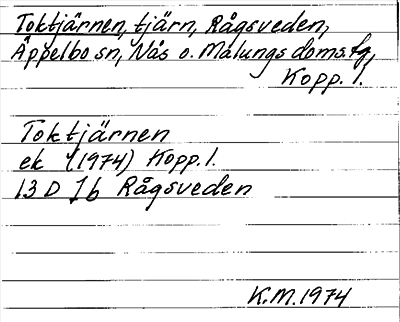 Toktjärnen, tjärn, Rågsveden,
Äppelbo sn, Nås o. Malungs doms.tg,
Kopp. l.
Toktjärnen
ek (1974) Kopp. l.
13 D 7b Rågsveden
K.M. 1974